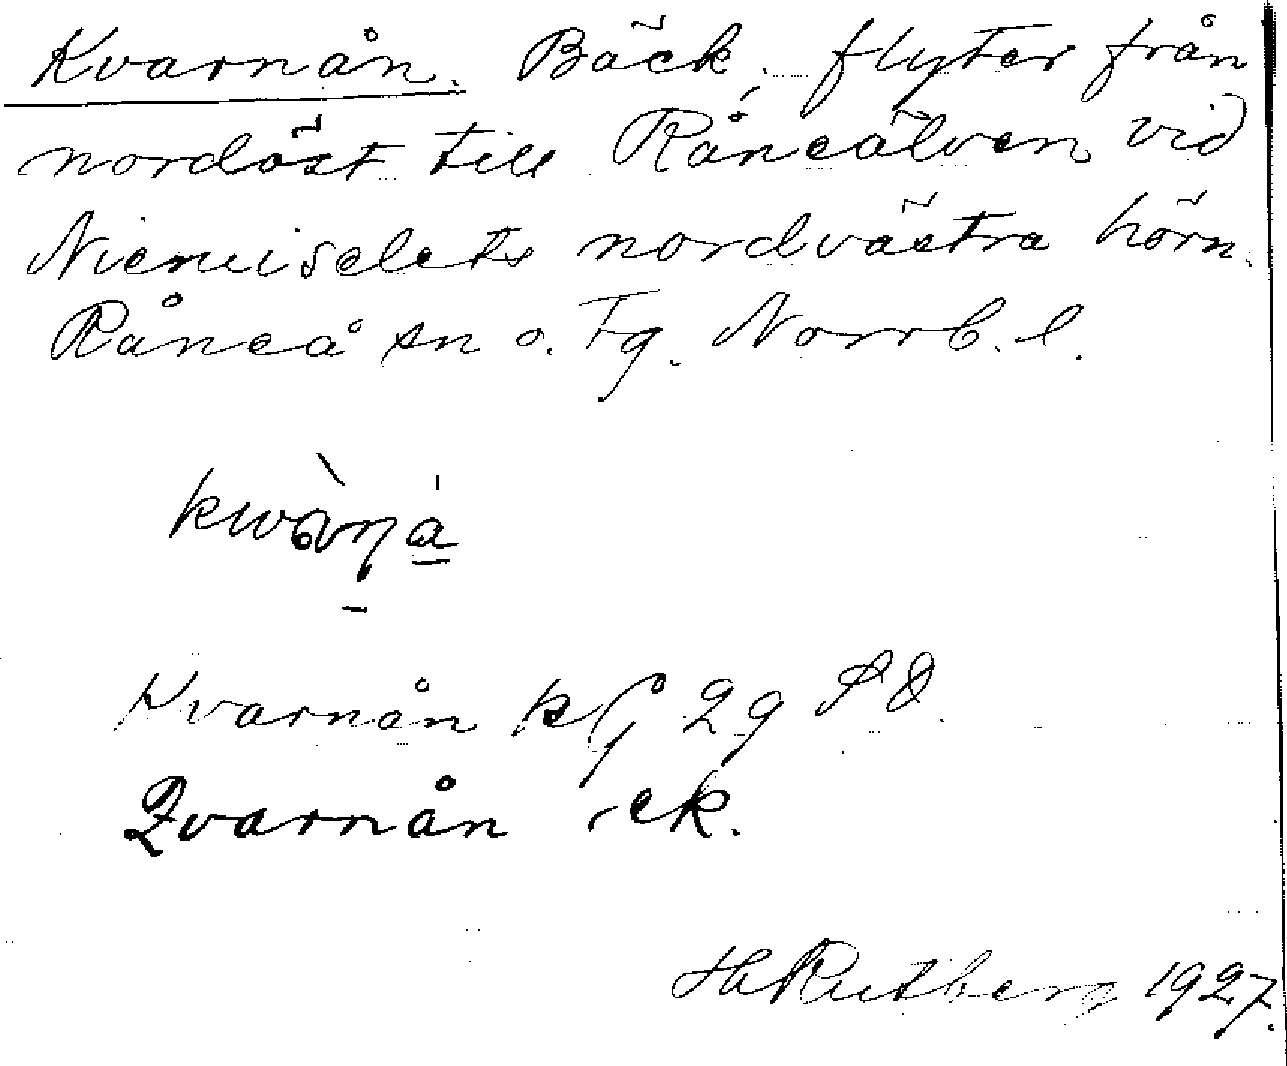 Kvarnån. Bäck, flyter från
nordöst till Råneälven vid
Niemiselets nordvästra hörn.
Råneå sn o. Tg. Norrb. l.
Kvarnån kg 29 SO
Qvarnån -ek.
H Rutberg 1927.